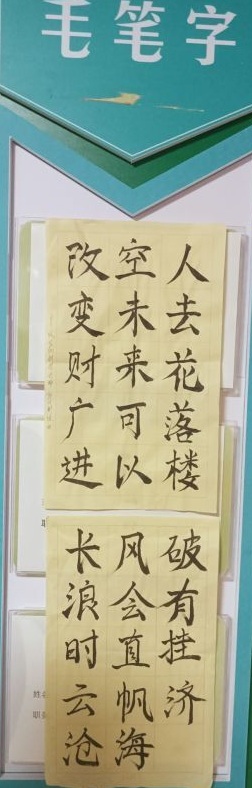 毛笔字
人去花落楼
空未来可以
改变财广进
长风破
浪会有
时直挂
云帆济
沧海
姓
职